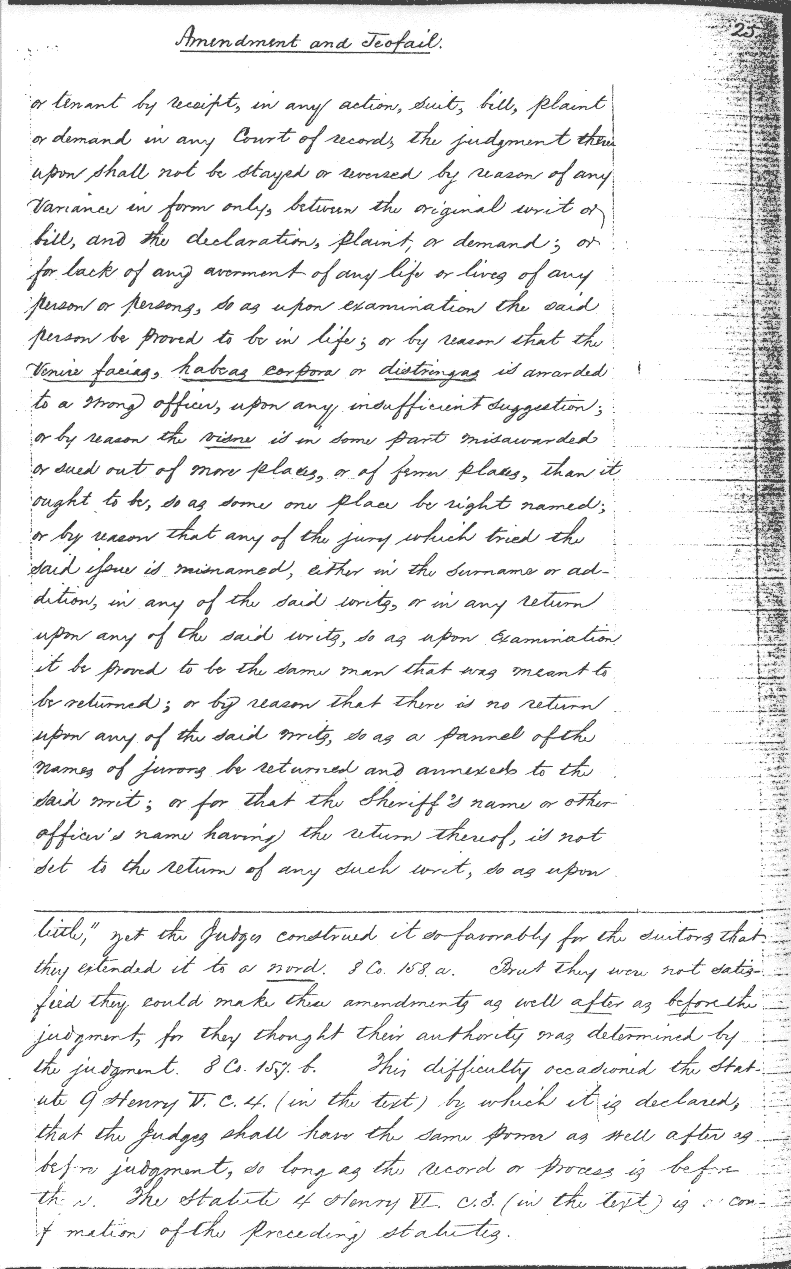 Amendment and Jeofail.
25.
or tenant by receipt, in any action, suit, bill, plaint
or demand in any Court of record, the judgment there
upon shall not be stayed or reversed by reason of any
Variance in form only, between the original writ or
bill, and the declaration, plaint, or demand; or
for lack of any averment of any life or lives of any
person or persons, so as upon examination the said
person be proved to be in life; or by reason that the
Venire facias, habeas corpora or distringas is awarded
to a wrong officer, upon any insufficient suggestion;
or by reason the visne is in some part misawarded
or sued out of more places, or of fewer places, than it
ought to be, so as some one place be right named;
or by reason that any of the jury which tried the
said issue is misnamed, either in the surname or ad-
dition, in any of the said writs, or in any return
upon any of the said writs, so as upon examination
it be proved to be the same man that was meant to
be returned; or by reason that there is no return
upon any of the said writs, so as a pannel of the
names of jurors be returned and annexed to the
said writ; or for that the Sheriff's name or other
officer's name having the return thereof, is not
set to the return of any such writ, so as upon
little," yet the Judges construed it so favorably for the suitors that
they extended it to a word. 8 Co. 158. a. But they were not satis-
fied they could make these amendments as well after as before the
judgment, for they thought their authority was determined by
the judgment. 8 Co. 157. b. This difficulty occasioned the Stat-
ute 9 Henry V. c. 4. (in the text) by which it is declared,
that the Judges shall have the same power as well after as
before judgment, so long as the record or process is before
The Statute 4 Henry VI. c. 3. (in the text) is con-
mation of the preceding statutes.